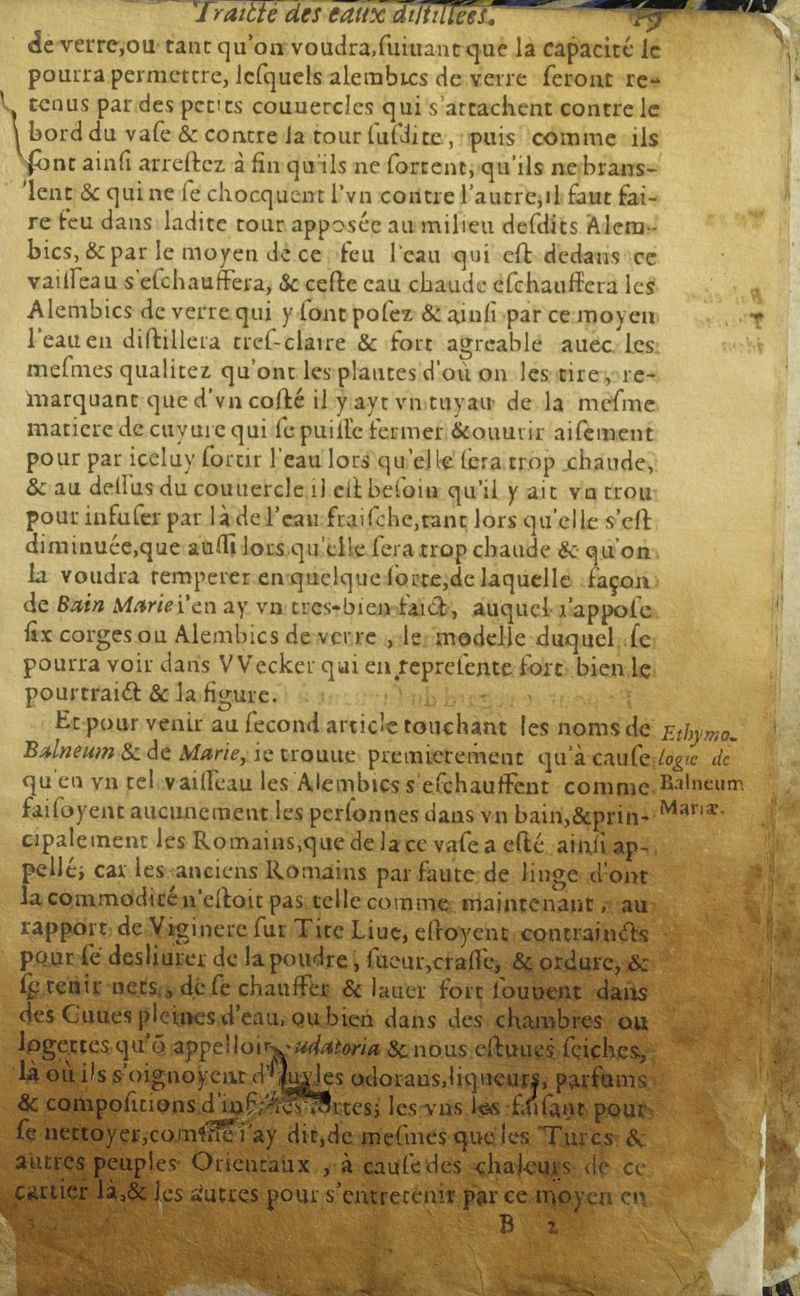 Traicté des eaux distillees. 19
de verre,ou tant qu'on voudra,suiuant que la capacité le
pourra permettre, lesquels alembics de verre seront re-
tenus par des petits couuercles qui s'attachent contre le
bord du vase & contre la tour susdite, puis comme ils
sont ainsi arrestez à fin qu'ils ne sortent, qu'ils ne brans-
lent & qui ne se chocquent l'vn contre l'autre,il faut fai-
re feu dans ladite tour apposée au milieu desdits Alem-
bics, & par le moyen de ce feu l'eau qui est dedans ce
vaisseau s'eschauffera, & ceste eau chaude eschauffera les
Alembics de verre qui y sont posez & ainsi par ce moyen
l'eau en distillera tres-claire & fort agreable auec les
mesmes qualitez qu'ont les plantes d'où on les tire, re-
marquant que d'vn costé il y ayt vn tuyau de la mesme
matiere de cuyure qui se puisse fermer & ouurir aisement
pour par iceluy sortir l'eau lors qu'elle sera trop chaude,
& au dessus du couuercle il est besoin qu'il y ait vn trou
pour infuser par là de l'eau fraische,tant lors qu'elle s'est
diminuée,que aussi lors qu'elle sera trop chaude & qu'on
la voudra temperer en quelque sorte,de laquelle façon
de Bain Marie i'en ay vn tres-bien faict, auquel i'appose
six corges ou Alembics de verre, le modelle duquel se
pourra voir dans VVecker qui en represente fort bien le
pourtraict & la figure.
Et pour venir au second article touchant les noms de
Balneum & de Marie, ie trouue premierement qu'à cause
qu'en vn tel vaisseau les Alembics s'eschauffent comme
faisoyent aucunement les personnes dans vn bain,&prin-
cipalement les Romains,que de la ce vase a esté ainsi ap-
pellé; car les anciens Romains par faute de linge d'ont
la commodité n'estoit pas telle comme maintenant, au
rapport de Viginere sur Tite Liue, estoyent contraincts
pour se desliurer de la poudre, sueur,crasse, & ordure, &
se tenir nets, de se chauffer & lauer fort souuent dans
des Cuues pleines d'eau, ou bien dans des chambres ou
logettes qu'õ appelloit udatoria & nous estuues seiches,
là où ils s'oignoyent d'huyles odorans,liqueurs, parfums
& compositions d'infinies sortes; les vns les faisant pour
se nettoyer,comme i'ay dit,de mesmes que les Turcs &
autres peuples Orientaux, à cause des chaleurs de ce
cartier là,& les autres pour s'entretenir par ce moyen en
B 2
Ethymo-
logie de
Balneum
Mariæ.